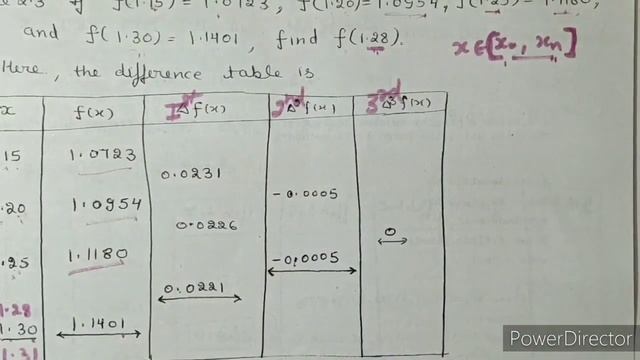 2.3 If f(1.15) = 1.0723, f(1.20) = 1.0954, f(1.25) = 1.1180,
and f(1.30) = 1.1401, find f(1.28).
x∈[x₀, xₙ]
Here, the difference table is
x f(x) 1st Δf(x) 2nd Δ²f(x) 3rd Δ³f(x)
15 1.0723
0.0231
-0.0005
.20 1.0954
0.0226 0
.25 1.1180 -0.0005
0.0221
1.28
1.30 1.1401
1.31
PowerDirector